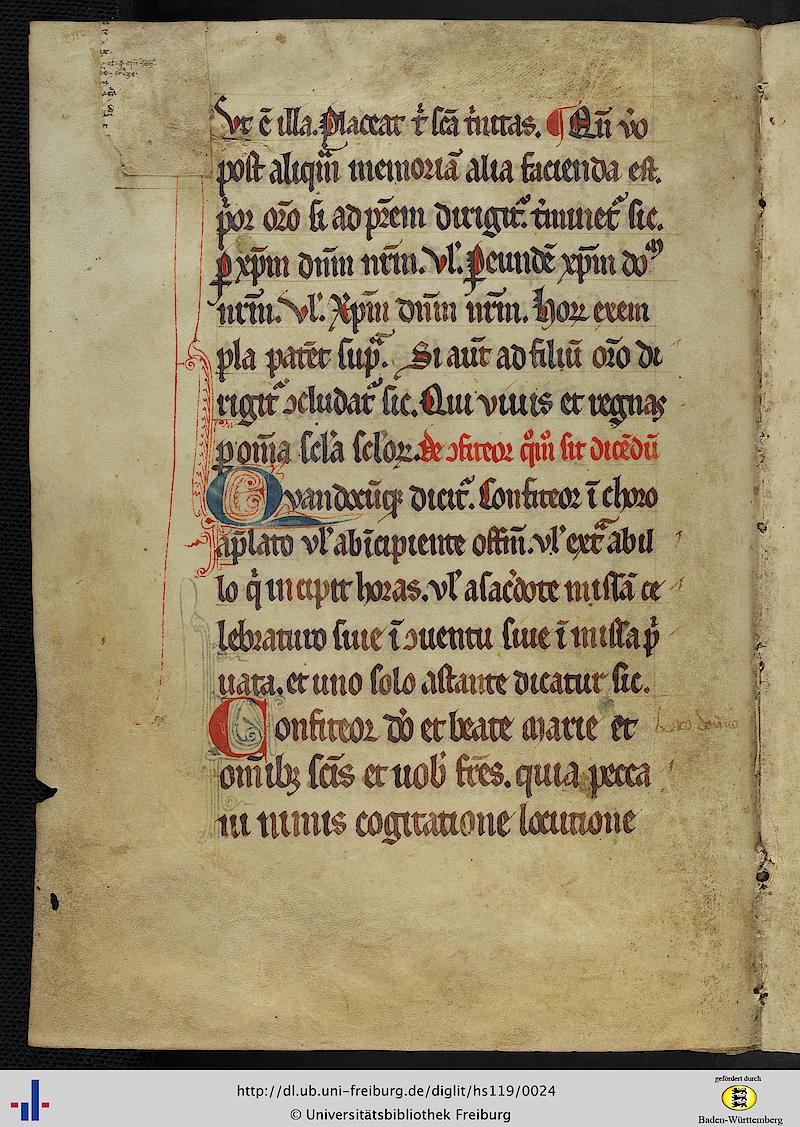 Vt ē illa. Placeat t̄ scā t̄nitas. ¶ Qn̄ v̊o
post aliqm̄ memoriā alia facienda est.
p̄or or̄o si ad pr̄em dirigit᷑. t̄minet᷑ sic.
ꝑ xp̄m dn̄m nr̄m. Vl̄. ꝑ eundē xp̄m do
nr̄m. Vl̄. Xp̄m dn̄m nr̄m. Hoꝝ exem
pla patēt supͣ. Si aut̄ ad filiū or̄o di
rigit᷑ ꝯcludat᷑ sic. Qui viuis et regnas
ꝑ om̄ia scl̄a scloꝝ. de ꝯfiteor qͦm̊ sit dicēdū
Quandocūqꝫ dicit᷑. Confiteor ī choro
a p̄lato vl̄ ab īcipiente offm̄. vl̄ extͣ ab il
lo qͥ incipit horas. vl̄ a sac̄dote missā ce
lebraturo siue ī ꝯuentu siue ī missa pͥ
uata. et uno solo astante dicatur sic.
Confiteor dō et beate marie et
om̄ibꝫ scīs et uob̄ fr̄es. quia pecca
ui nimis cogitatione locutione
http://dl.ub.uni-freiburg.de/diglit/hs119/0024
© Universitätsbibliothek Freiburg
gefördert durch
Baden-Württemberg